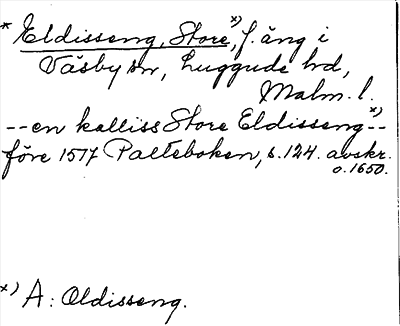 * Eldisseng, Store, *) f. äng i
Väsby sn, Luggude hd,
Malm. l.
--en kalliss Store Eldisseng *)--
före 1517 Palteboken, s. 124. avskr.
o. 1650.
*) A: Oldisseng.